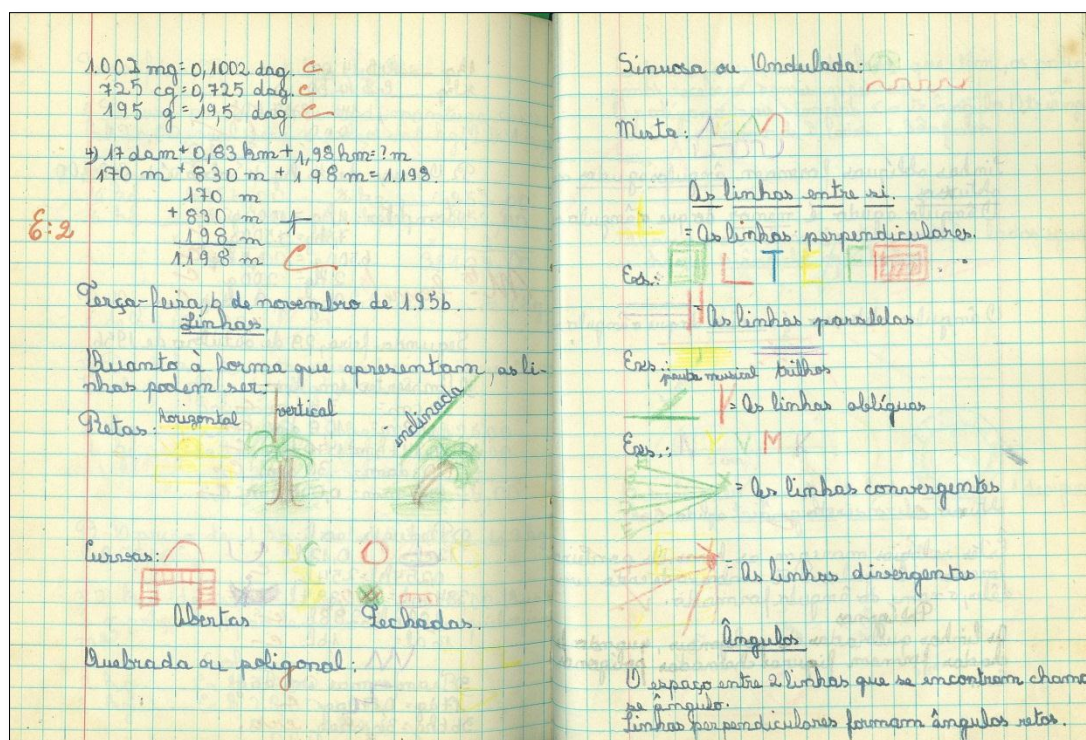 1.002 mg = 0,1002 dag. C
725 cg = 0,725 dag. C
195 g = 19,5 dag. C
4) 17 dam + 0,83 km + 1,98 hm = ? m
170 m + 830 m + 198 m = 1.198.
170 m
+ 830 m
E:2
198 m
1.198 m C
Terça-feira, 6 de novembro de 1956.
Linhas
Quanto à forma que apresentam, as li-
nhas podem ser:
Retas: horizontal vertical inclinada
Curvas:
Abertas Fechadas.
Quebrada ou poligonal:
Sinuosa ou Ondulada:
Mista:
As linhas entre si.
= As linhas perpendiculares.
Exs.: L T E F
= As linhas paralelas
Exs.: pauta musical trilhos
= As linhas oblíquas
Exs.: A Y V M K
= As linhas convergentes
= As linhas divergentes
Ângulos
O espaço entre 2 linhas que se encontram chama
se ângulo.
Linhas perpendiculares formam ângulos retos.